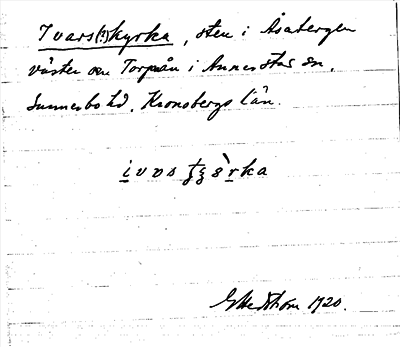 Ivars(?)kyrka, sten i Åsabergen
väster om Torpaån i Annerstad sn,
Sunnerbo hd. Kronobergs län.
ivas
G Hedström 1920.